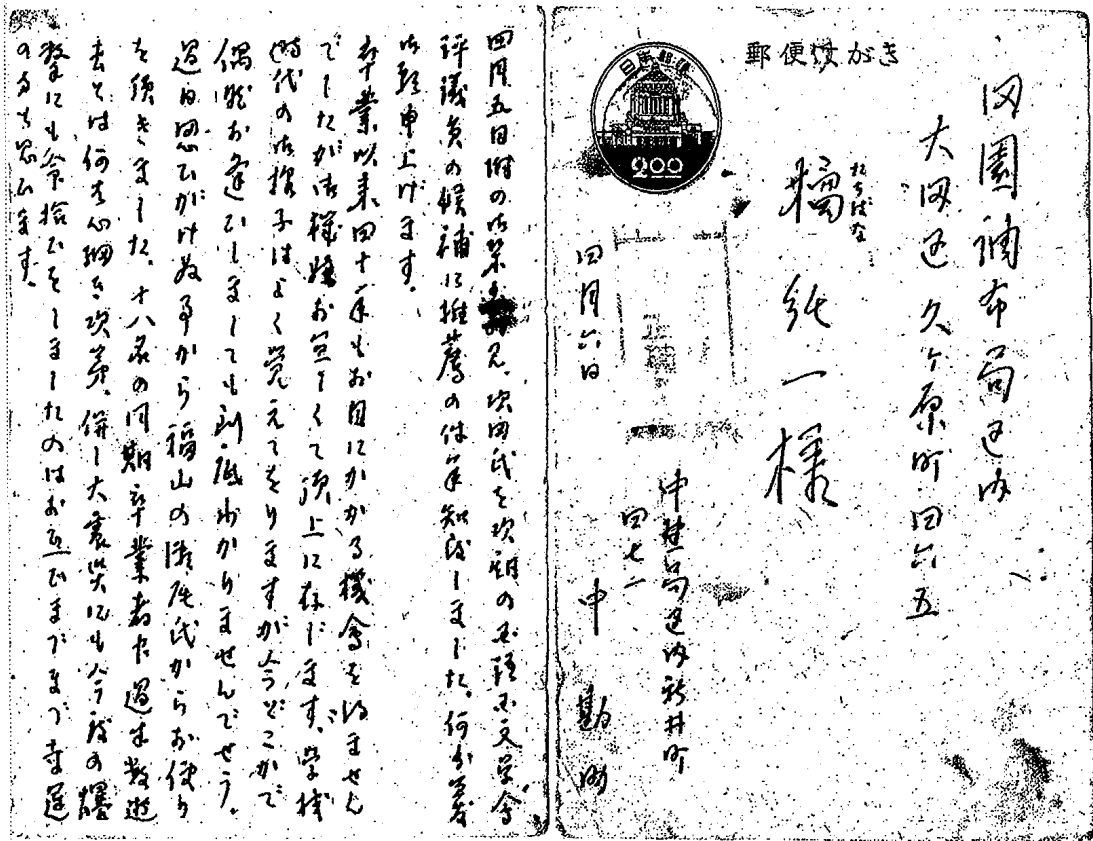 郵便はがき
日本郵便
200
田園調布局区内
大田区久ヶ原町四六五
橘純一様
たちばな
四月六日
中野局区内新井町
四七一
中勘助
四月五日附の御葉書拝見、次田氏を次期の国語国文学会
評議員の候補に推薦の件承知致しました。何分茂
御願申上げます。
卒業以来四十一年もお目にかかる機會を得ません
でしたが御機嫌お宜しくて頂上に存じます。学校
時代の御様子はよく覚えてをりますが今どこかで
偶然お逢ひしましても到底わかりませんでせう。
過日思ひがけぬ事から福山の氏からお便り
を頂きました。十八名の同期卒業者中過半数逝
去とは何とも心細き次第、併し大震災にも今度の爆
撃にも命拾ひをしましたのはお互ひまづまづ幸運
の方と思ひます。